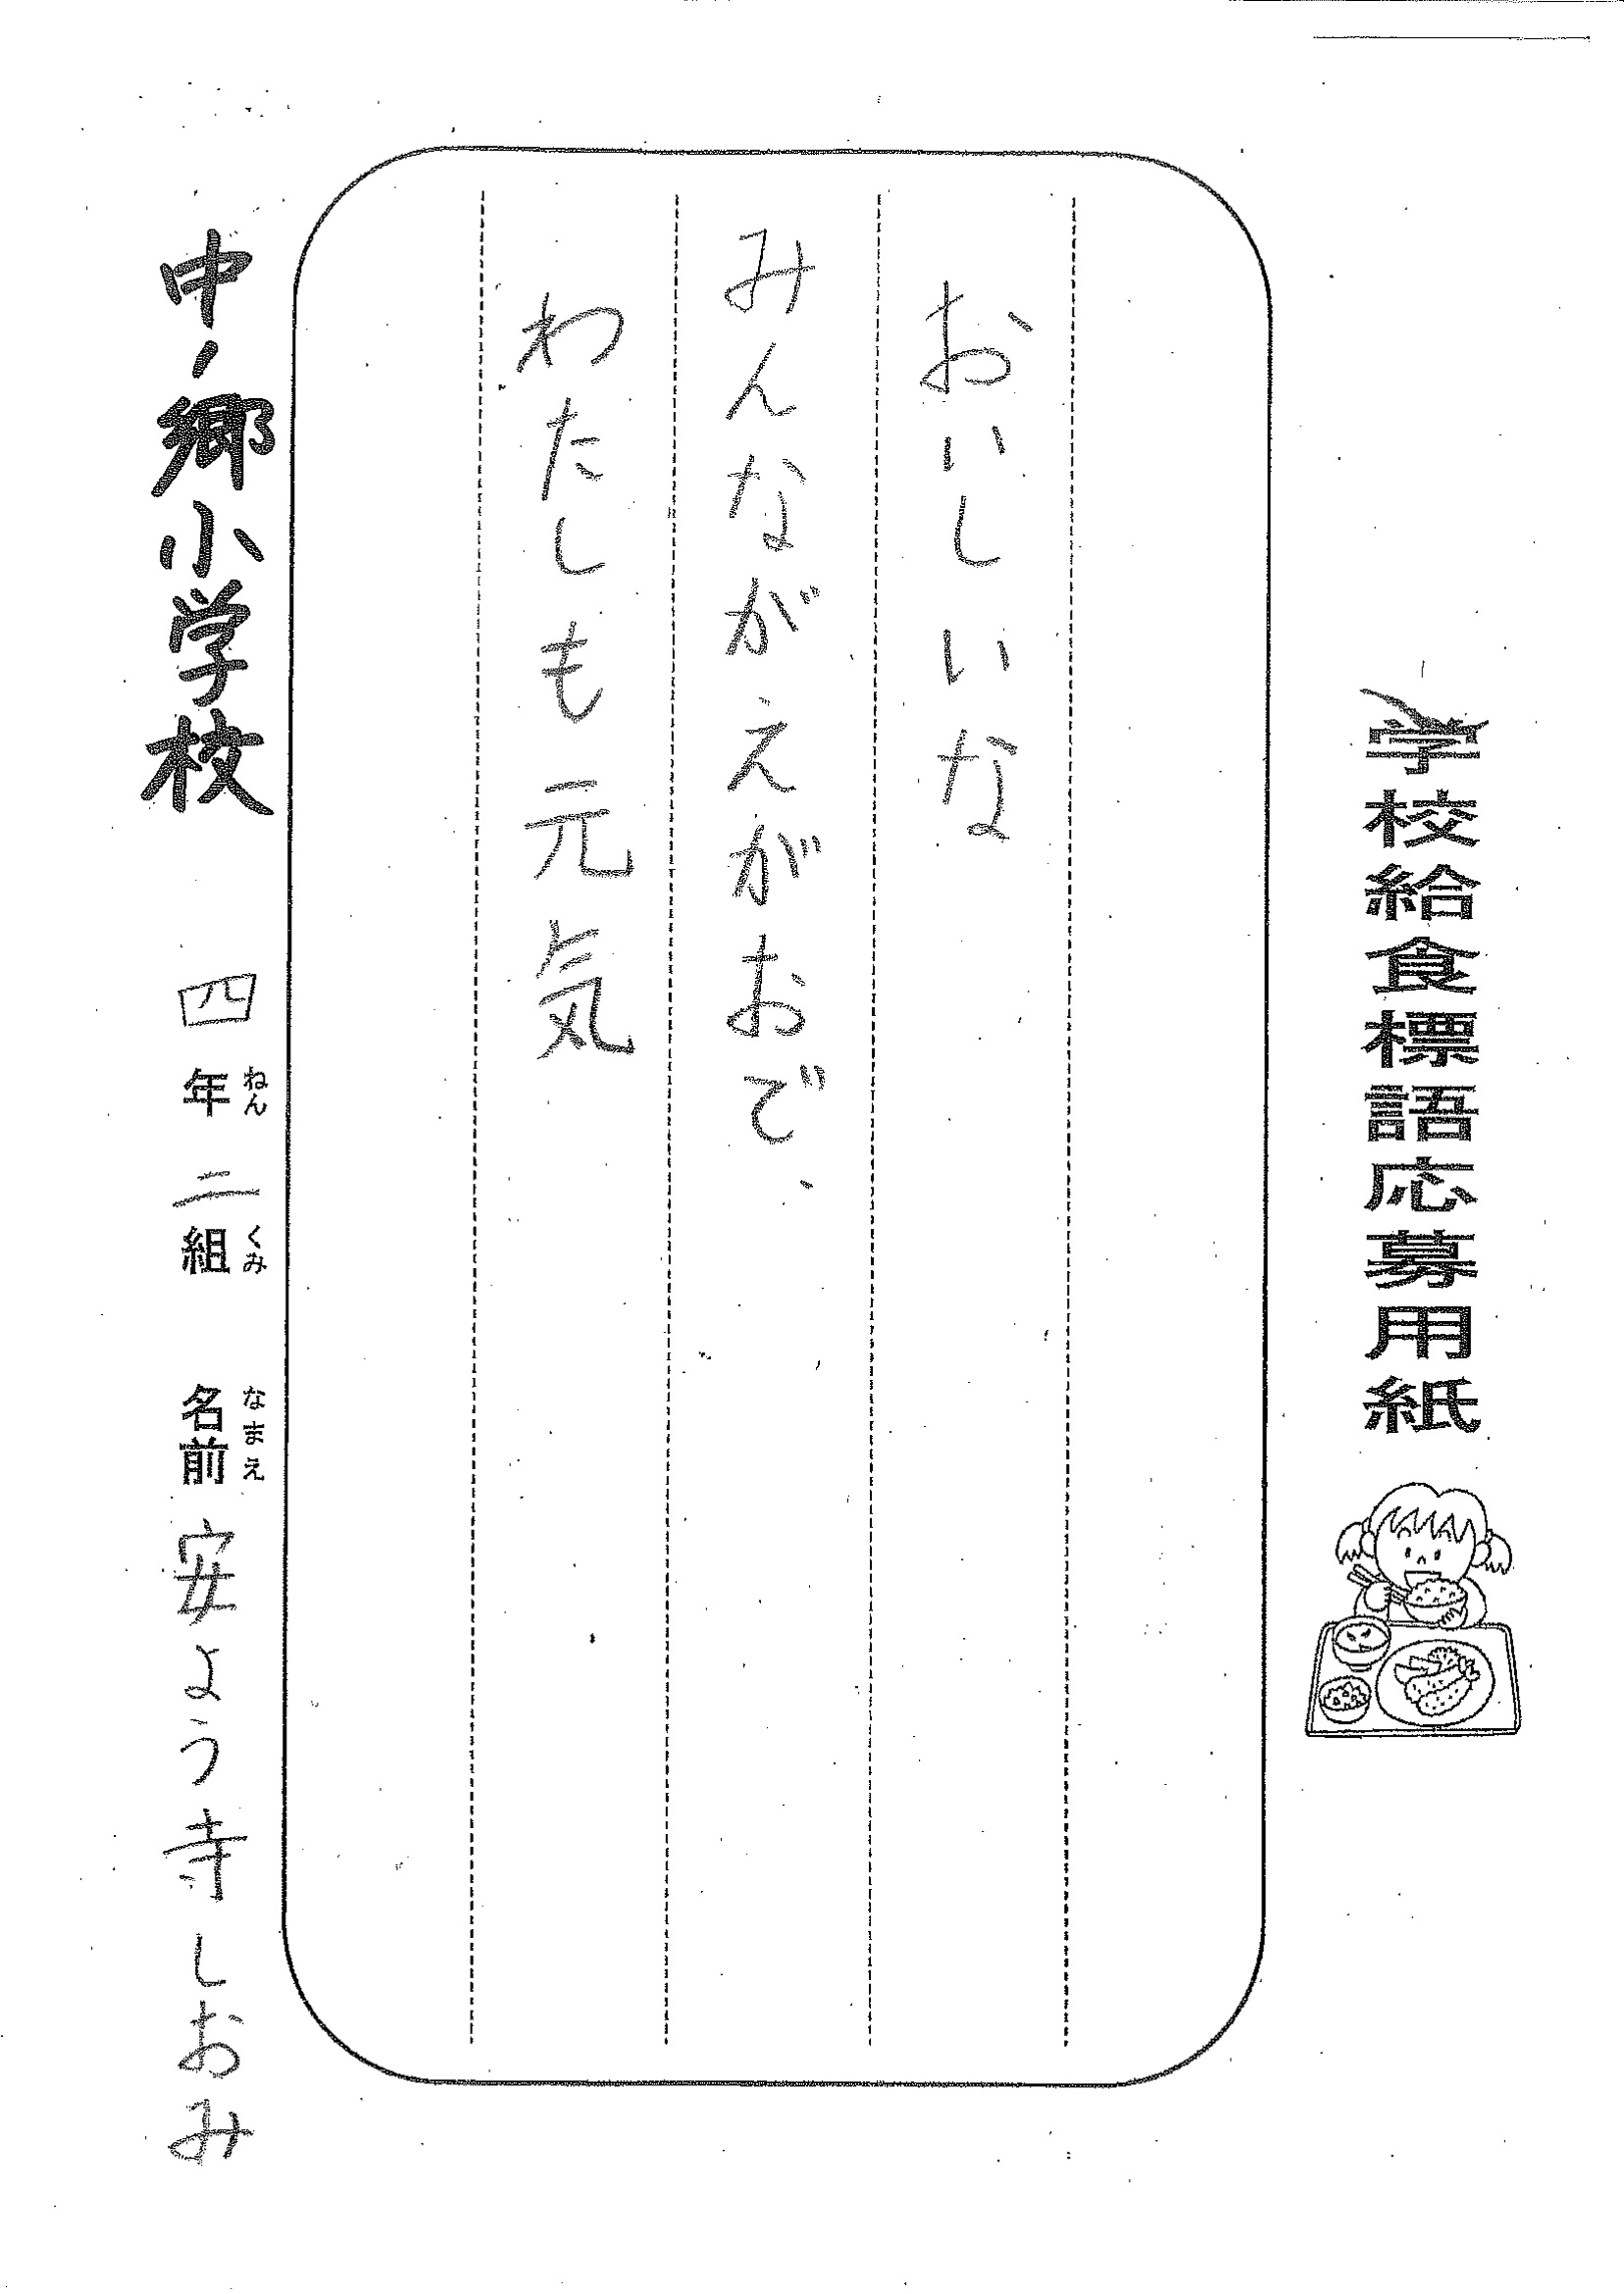 学校給食標語応募用紙
おいしいな
みんながえがおで、
わたしも元気
中ノ郷小学校 四年 二組 名前 安よう寺しおみ
ねん くみ なまえ